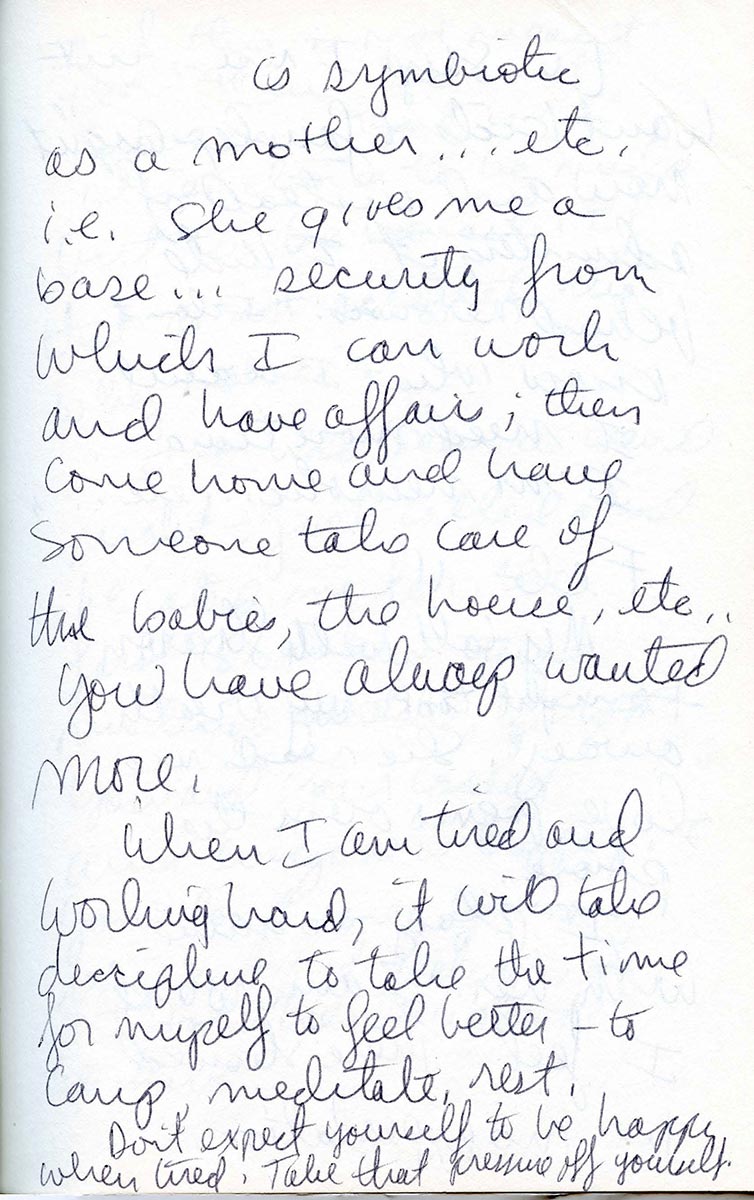 is symbiotic
as a mother... etc.
i.e. She gives me a
base... security from
which I can work
and have affairs; then
come home and have
someone take care of
the babies, the house, etc..
You have always wanted
more.
When I am tired and
working hard, it will take
discipline to take the time
for myself to feel better - to
camp, meditate, rest.
Don't expect yourself to be happy
when tired. Take that pressure off yourself.